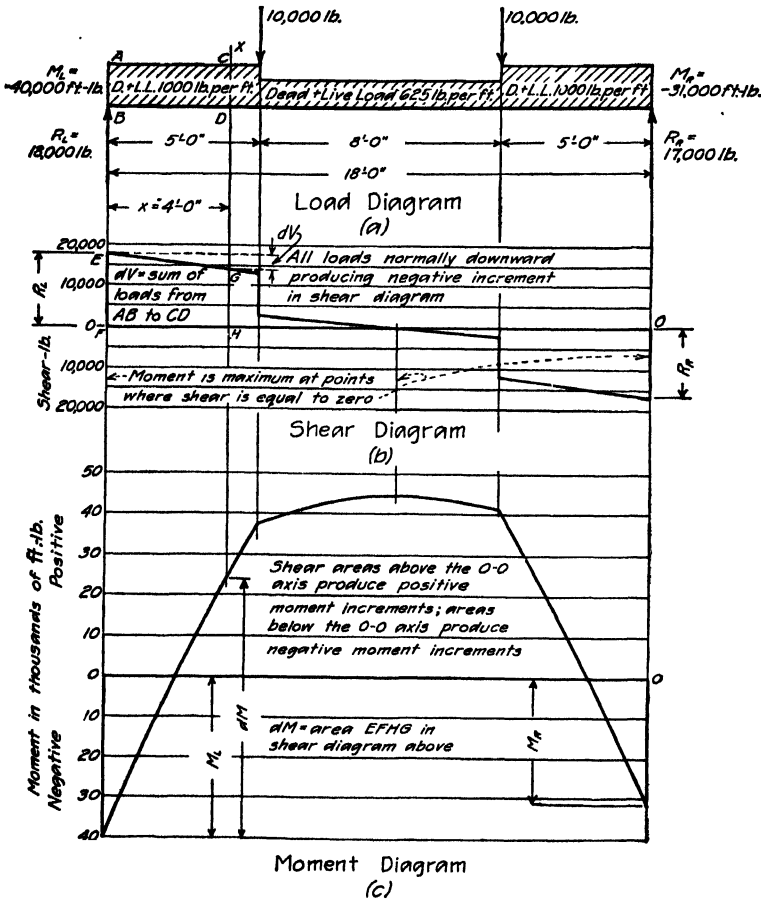 10,000 lb.
10,000 lb.
A
C
X
M_L =
-40,000 ft-lb.
D.+L.L. 1000 lb. per ft.
Dead + Live Load 625 lb. per ft.
D.+L.L. 1000 lb. per ft.
M_R =
-31,000 ft-lb.
B
D
R_L =
18,000 lb.
5'-0"
8'-0"
5'-0"
R_R =
17,000 lb.
18'-0"
x = 4'-0"
Load Diagram
(a)
dV
20,000
E
All loads normally downward
producing negative increment
in shear diagram
dV = sum of
loads from
AB to CD
G
10,000
R_L
0
F
H
O
Shear-lb.
10,000
Moment is maximum at points
where shear is equal to zero
R_R
20,000
Shear Diagram
(b)
50
40
30
20
10
0
10
20
30
40
Moment in thousands of ft.-lb.
Negative
Positive
Shear areas above the O-O
axis produce positive
moment increments; areas
below the O-O axis produce
negative moment increments
O
M_L
dM
dM = area EFHG in
shear diagram above
M_R
Moment Diagram
(c)